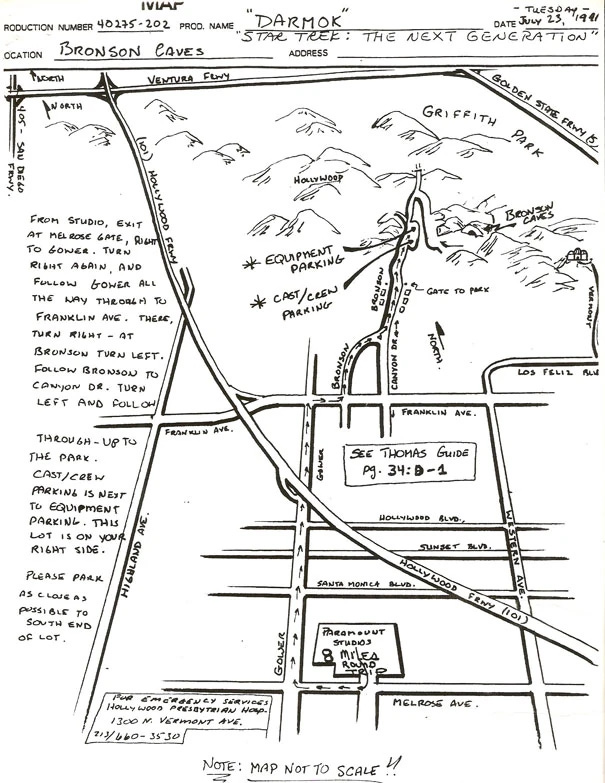 MAP
- TUESDAY -
PRODUCTION NUMBER 40275-202 PROD. NAME "DARMOK" DATE JULY 23, 1991
"STAR TREK: THE NEXT GENERATION"
LOCATION BRONSON CAVES ADDRESS
NORTH
VENTURA FRWY
NORTH
GOLDEN STATE FRWY (5)
405 - SAN DIEGO FRWY.
(101) HOLLYWOOD FRWY
GRIFFITH PARK
HOLLYWOOD
BRONSON CAVES
* EQUIPMENT PARKING
* CAST/CREW PARKING
BRONSON
GATE TO PARK
NORTH
CANYON DR.
BRONSON
VERMONT
LOS FELIZ BLV
FROM STUDIO, EXIT
AT MELROSE GATE, RIGHT
TO GOWER. TURN
RIGHT AGAIN, AND
FOLLOW GOWER ALL
THE WAY THROUGH TO
FRANKLIN AVE. THERE,
TURN RIGHT - AT
BRONSON TURN LEFT.
FOLLOW BRONSON TO
CANYON DR. TURN
LEFT AND FOLLOW
THROUGH-UP TO
THE PARK.
CAST/CREW
PARKING IS NEXT
TO EQUIPMENT
PARKING. THIS
LOT IS ON YOUR
RIGHT SIDE.
PLEASE PARK
AS CLOSE AS
POSSIBLE TO
SOUTH END
OF LOT.
FRANKLIN AVE.
FRANKLIN AVE.
GOWER
SEE THOMAS GUIDE
pg. 34: D-1
HOLLYWOOD BLVD.
SUNSET BLVD.
SANTA MONICA BLVD.
HOLLYWOOD FRWY (101)
WESTERN AVE.
HIGHLAND AVE.
GOWER
PARAMOUNT
STUDIOS
8 MILES
ROUND
TRIP
MELROSE AVE.
FOR EMERGENCY SERVICES
HOLLYWOOD PRESBYTRIAN HOSP.
1300 N. VERMONT AVE.
213/660-3530
NOTE: MAP NOT TO SCALE!!